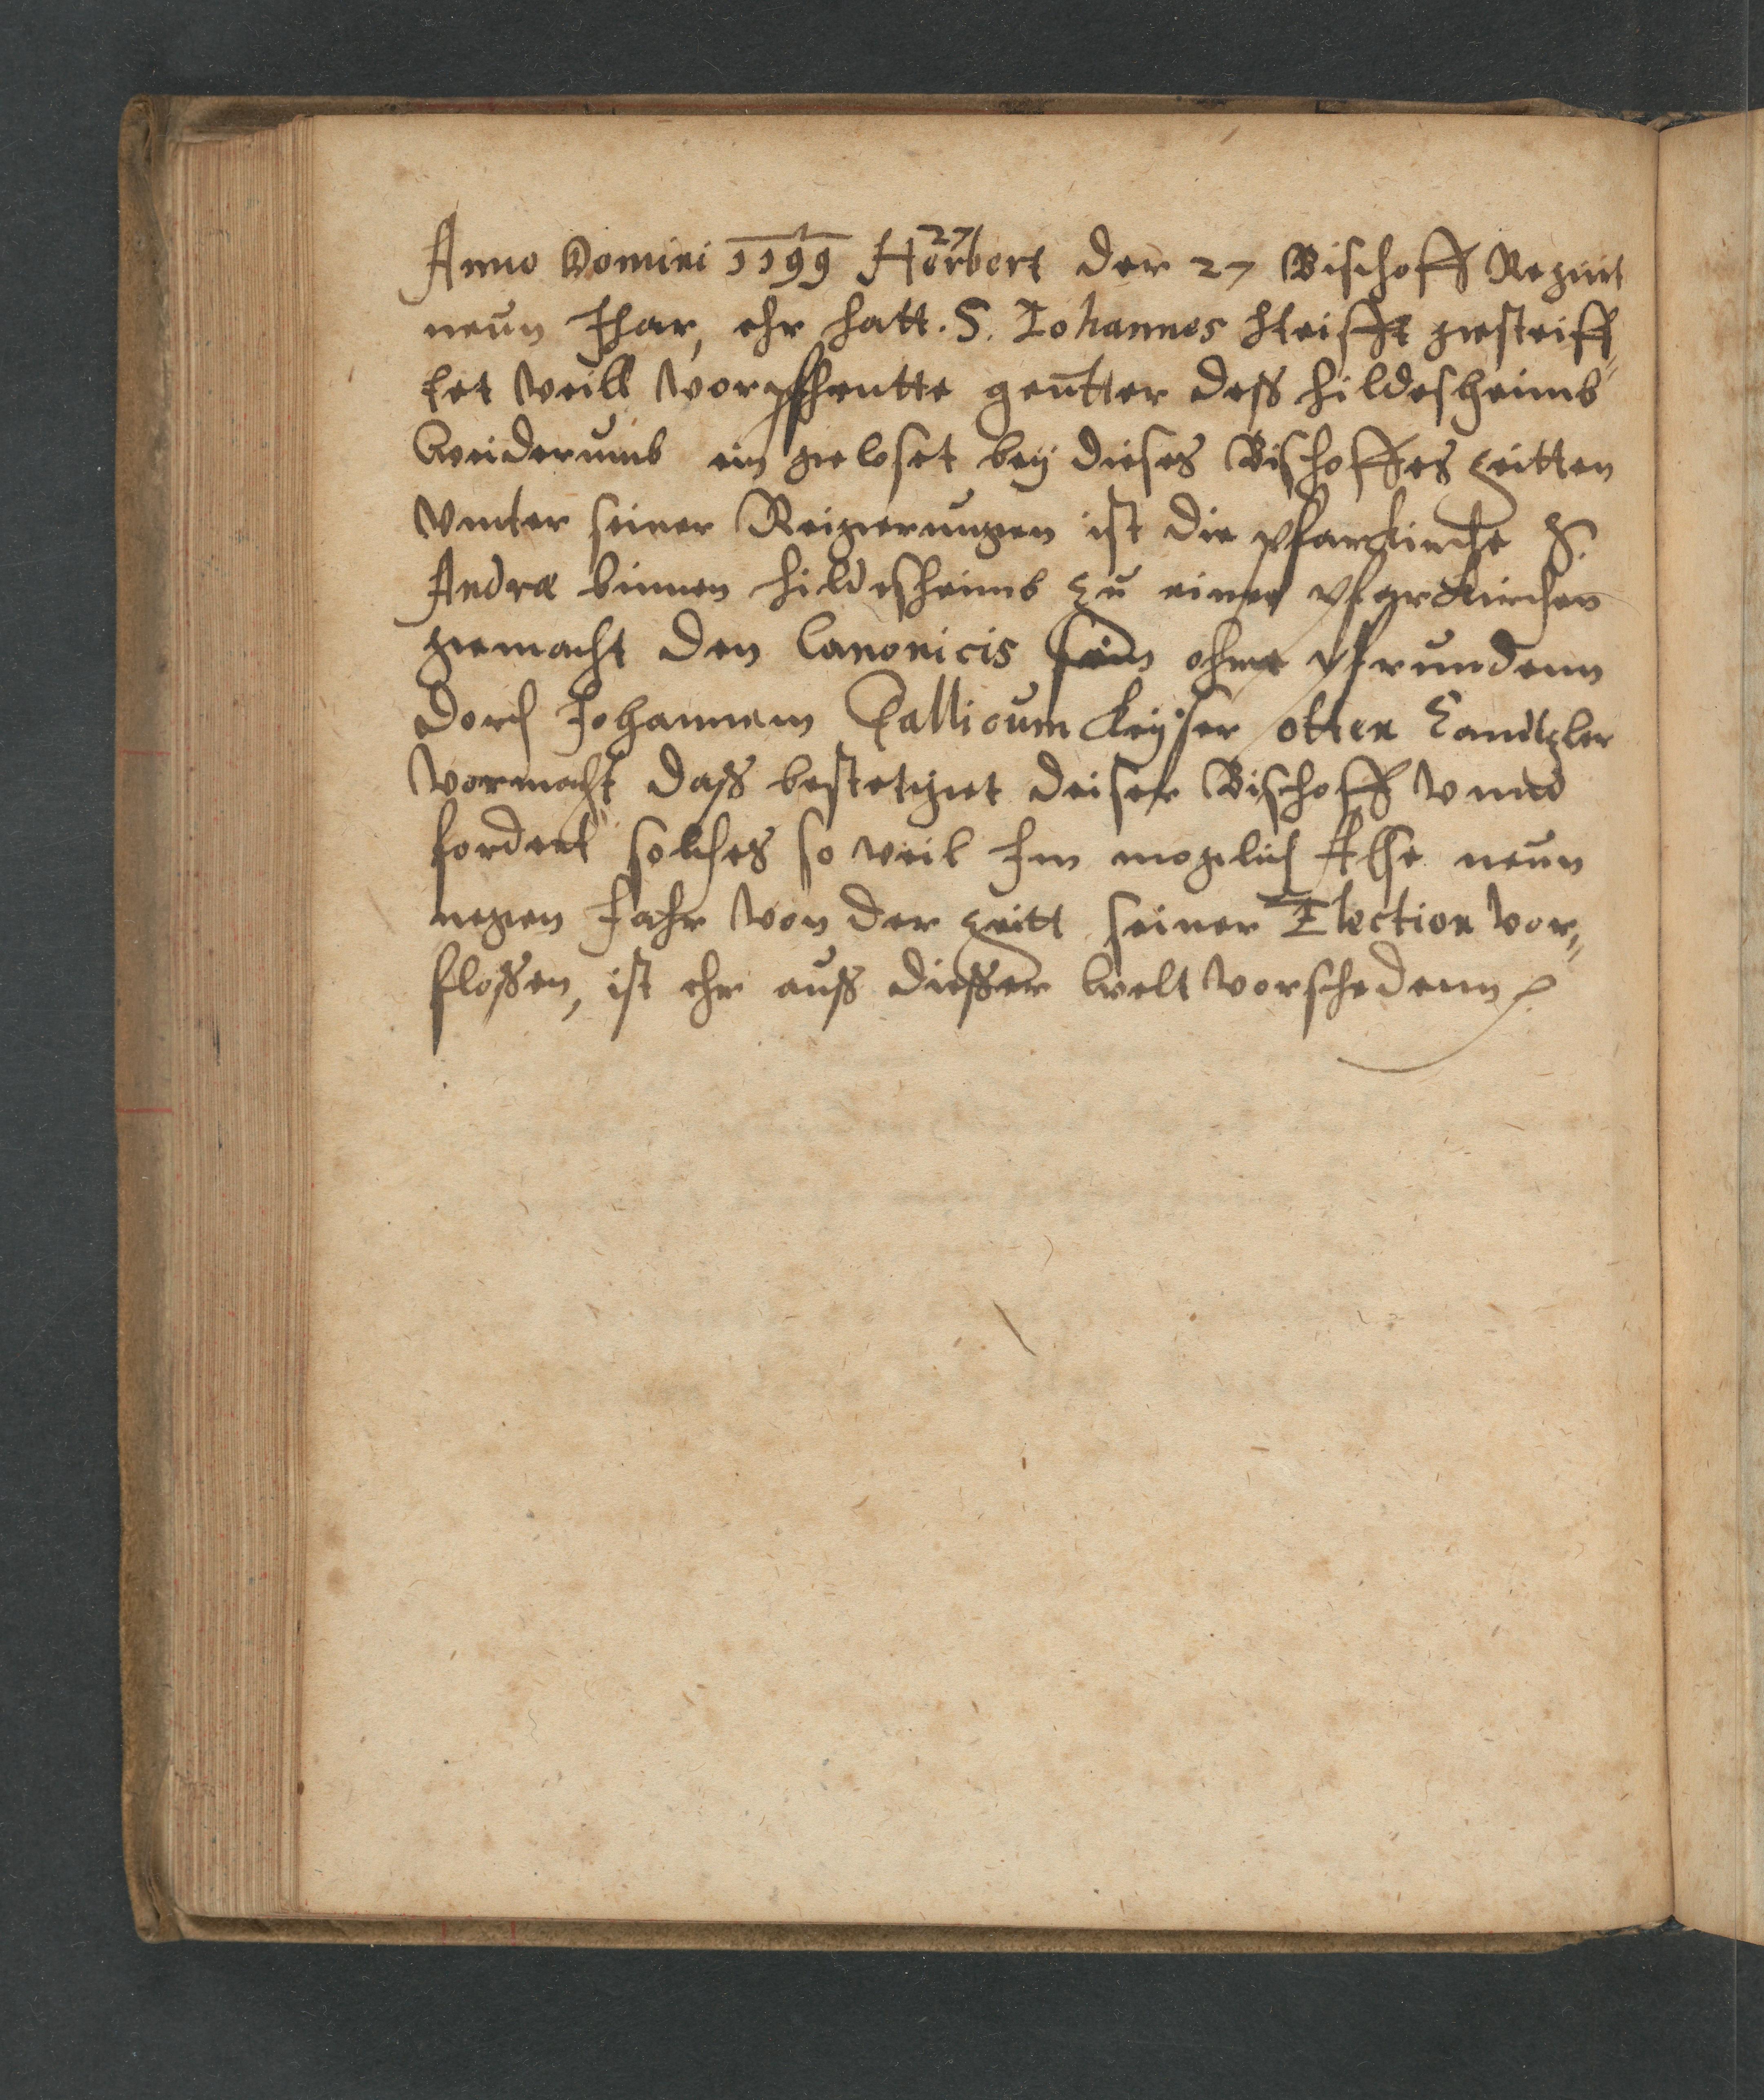 27
Anno Domini 1199 Herbert der 27 Bischoff Regirt
neun Jhar, ehr hatt. S. Johannes steifft gesteiff„
tet veill vorpsentte geutter dess hildesheimb
weiderumb ein geloset bey dieses Bischoffes zeitten
vnter seiner Reigerungen ist die pfarkirche S.
Andræ binnen hildesheimb zu einer pfarkirchen
gemacht den Canonicis sein ohne pfrundenn
dorch Johannem Gallicum Keyser otten Cantzler
vormacht dass bestetiget deiser Bischoff vnnd
fordert solches so veil Jm moglich Alse neun
negen Jahr von der zeitt seiner Election vor„
flossen, ist ehr auss diesser welt vorschedenn